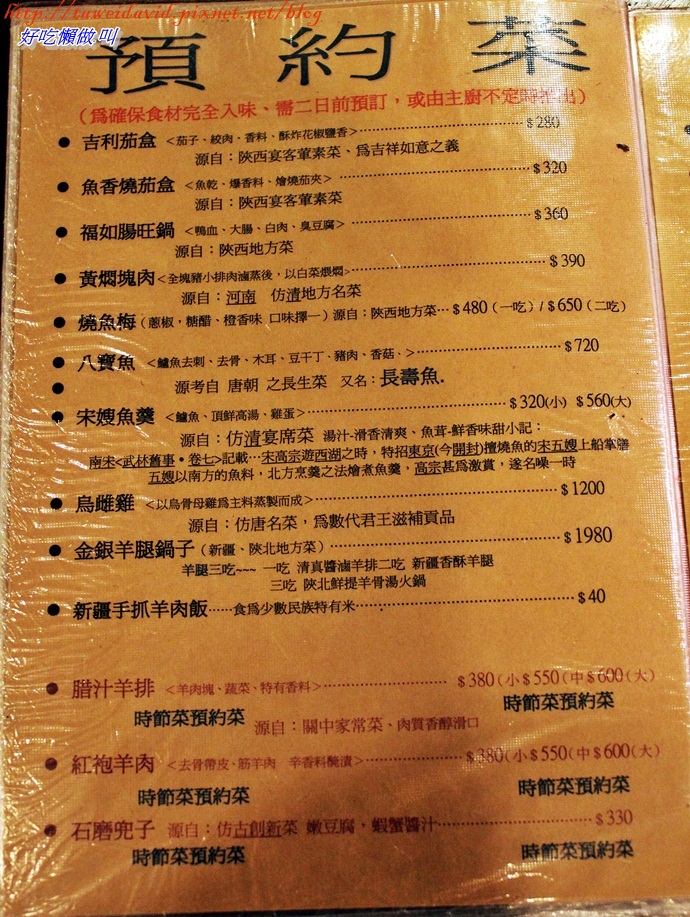 http://taweidavid.pixnet.net/blog
好吃懶做 叫
預約菜
（爲確保食材完全入味、需二日前預訂，或由主廚不定時推出）
● 吉利茄盒 <茄子、絞肉、香料、酥炸花椒鹽香>……$280
源自：陝西宴客葷素菜、爲吉祥如意之義
● 魚香燒茄盒 <魚乾、爆香料、燴燒茄夾>……$320
源自：陝西宴客葷素菜
● 福如腸旺鍋 <鴨血、大腸、白肉、臭豆腐>……$360
源自：陝西地方菜
● 黃燜塊肉<全塊豬小排肉滷蒸後，以白菜煨燜>……$390
源自：河南 仿清地方名菜
● 燒魚梅（蔥椒，糖醋、橙香味 口味擇一）源自：陝西地方菜…$480（一吃）/$650（二吃）
● 八寶魚 <鱸魚去刺、去骨、木耳、豆干丁、豬肉、香菇、>……$720
● 源考自 唐朝 之長生菜 又名：長壽魚.
● 宋嫂魚羹 <鱸魚、頂鮮高湯、雞蛋>……$320(小) $560(大)
源自：仿清宴席菜 湯汁-滑香清爽、魚茸-鮮香味甜小記：
南宋<武林舊事‧卷七>記載…宋高宗遊西湖之時，特招東京(今開封)擅燒魚的宋五嫂上船掌膳
五嫂以南方的魚料，北方烹羹之法燴煮魚羹，高宗甚爲激賞，遂名噪一時
● 烏雌雞 <以烏骨母雞爲主料蒸製而成>……$1200
源自：仿唐名菜，爲數代君王滋補貢品
● 金銀羊腿鍋子（新疆、陝北地方菜）……$1980
羊腿三吃~~~ 一吃 清真醬滷羊排二吃 新疆香酥羊腿
三吃 陝北鮮提羊骨湯火鍋
● 新疆手抓羊肉飯……食爲少數民族特有米……$40
● 腊汁羊排 <羊肉塊、蔬菜、特有香料>……$380(小$550(中$600(大)
時節菜預約菜 源自：關中家常菜、肉質香醇滑口 時節菜預約菜
● 紅袍羊肉 <去骨帶皮、筋羊肉 辛香料醃漬>……$380(小$550(中$600(大)
時節菜預約菜 時節菜預約菜
● 石磨兜子 源自：仿古創新菜 嫩豆腐，蝦蟹醬汁……$330
時節菜預約菜 時節菜預約菜